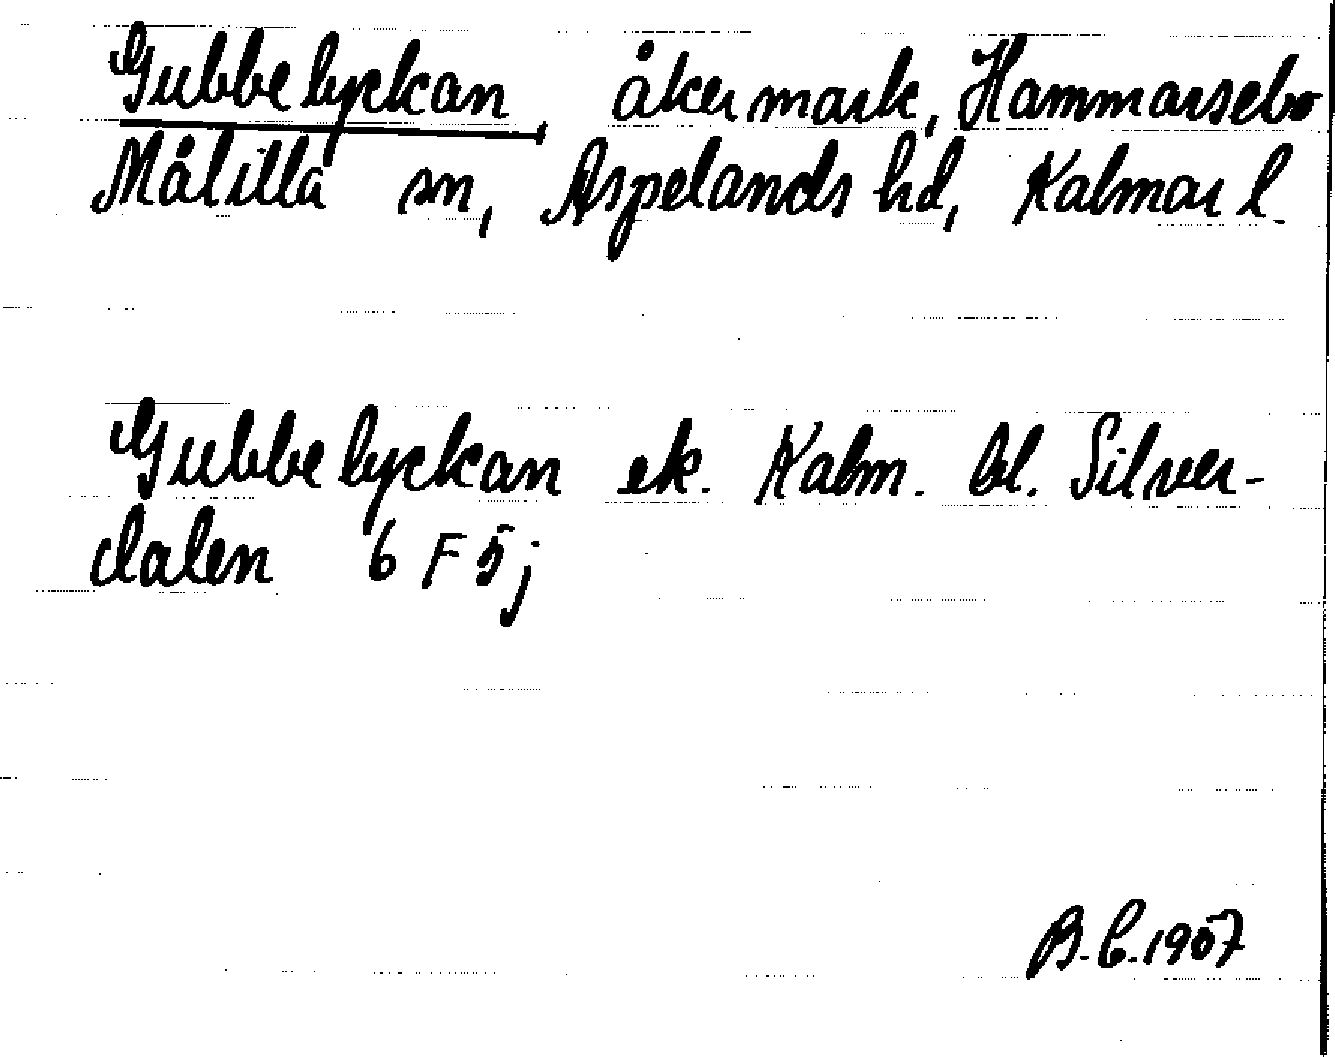 Gubbelyckan, åkermark, Hammarsebo
Målilla sn, Aspelands hd, Kalmar l.
Gubbelyckan ek. Kalm. bl. Silver-
dalen 6 F 5 j
B.C. 1957